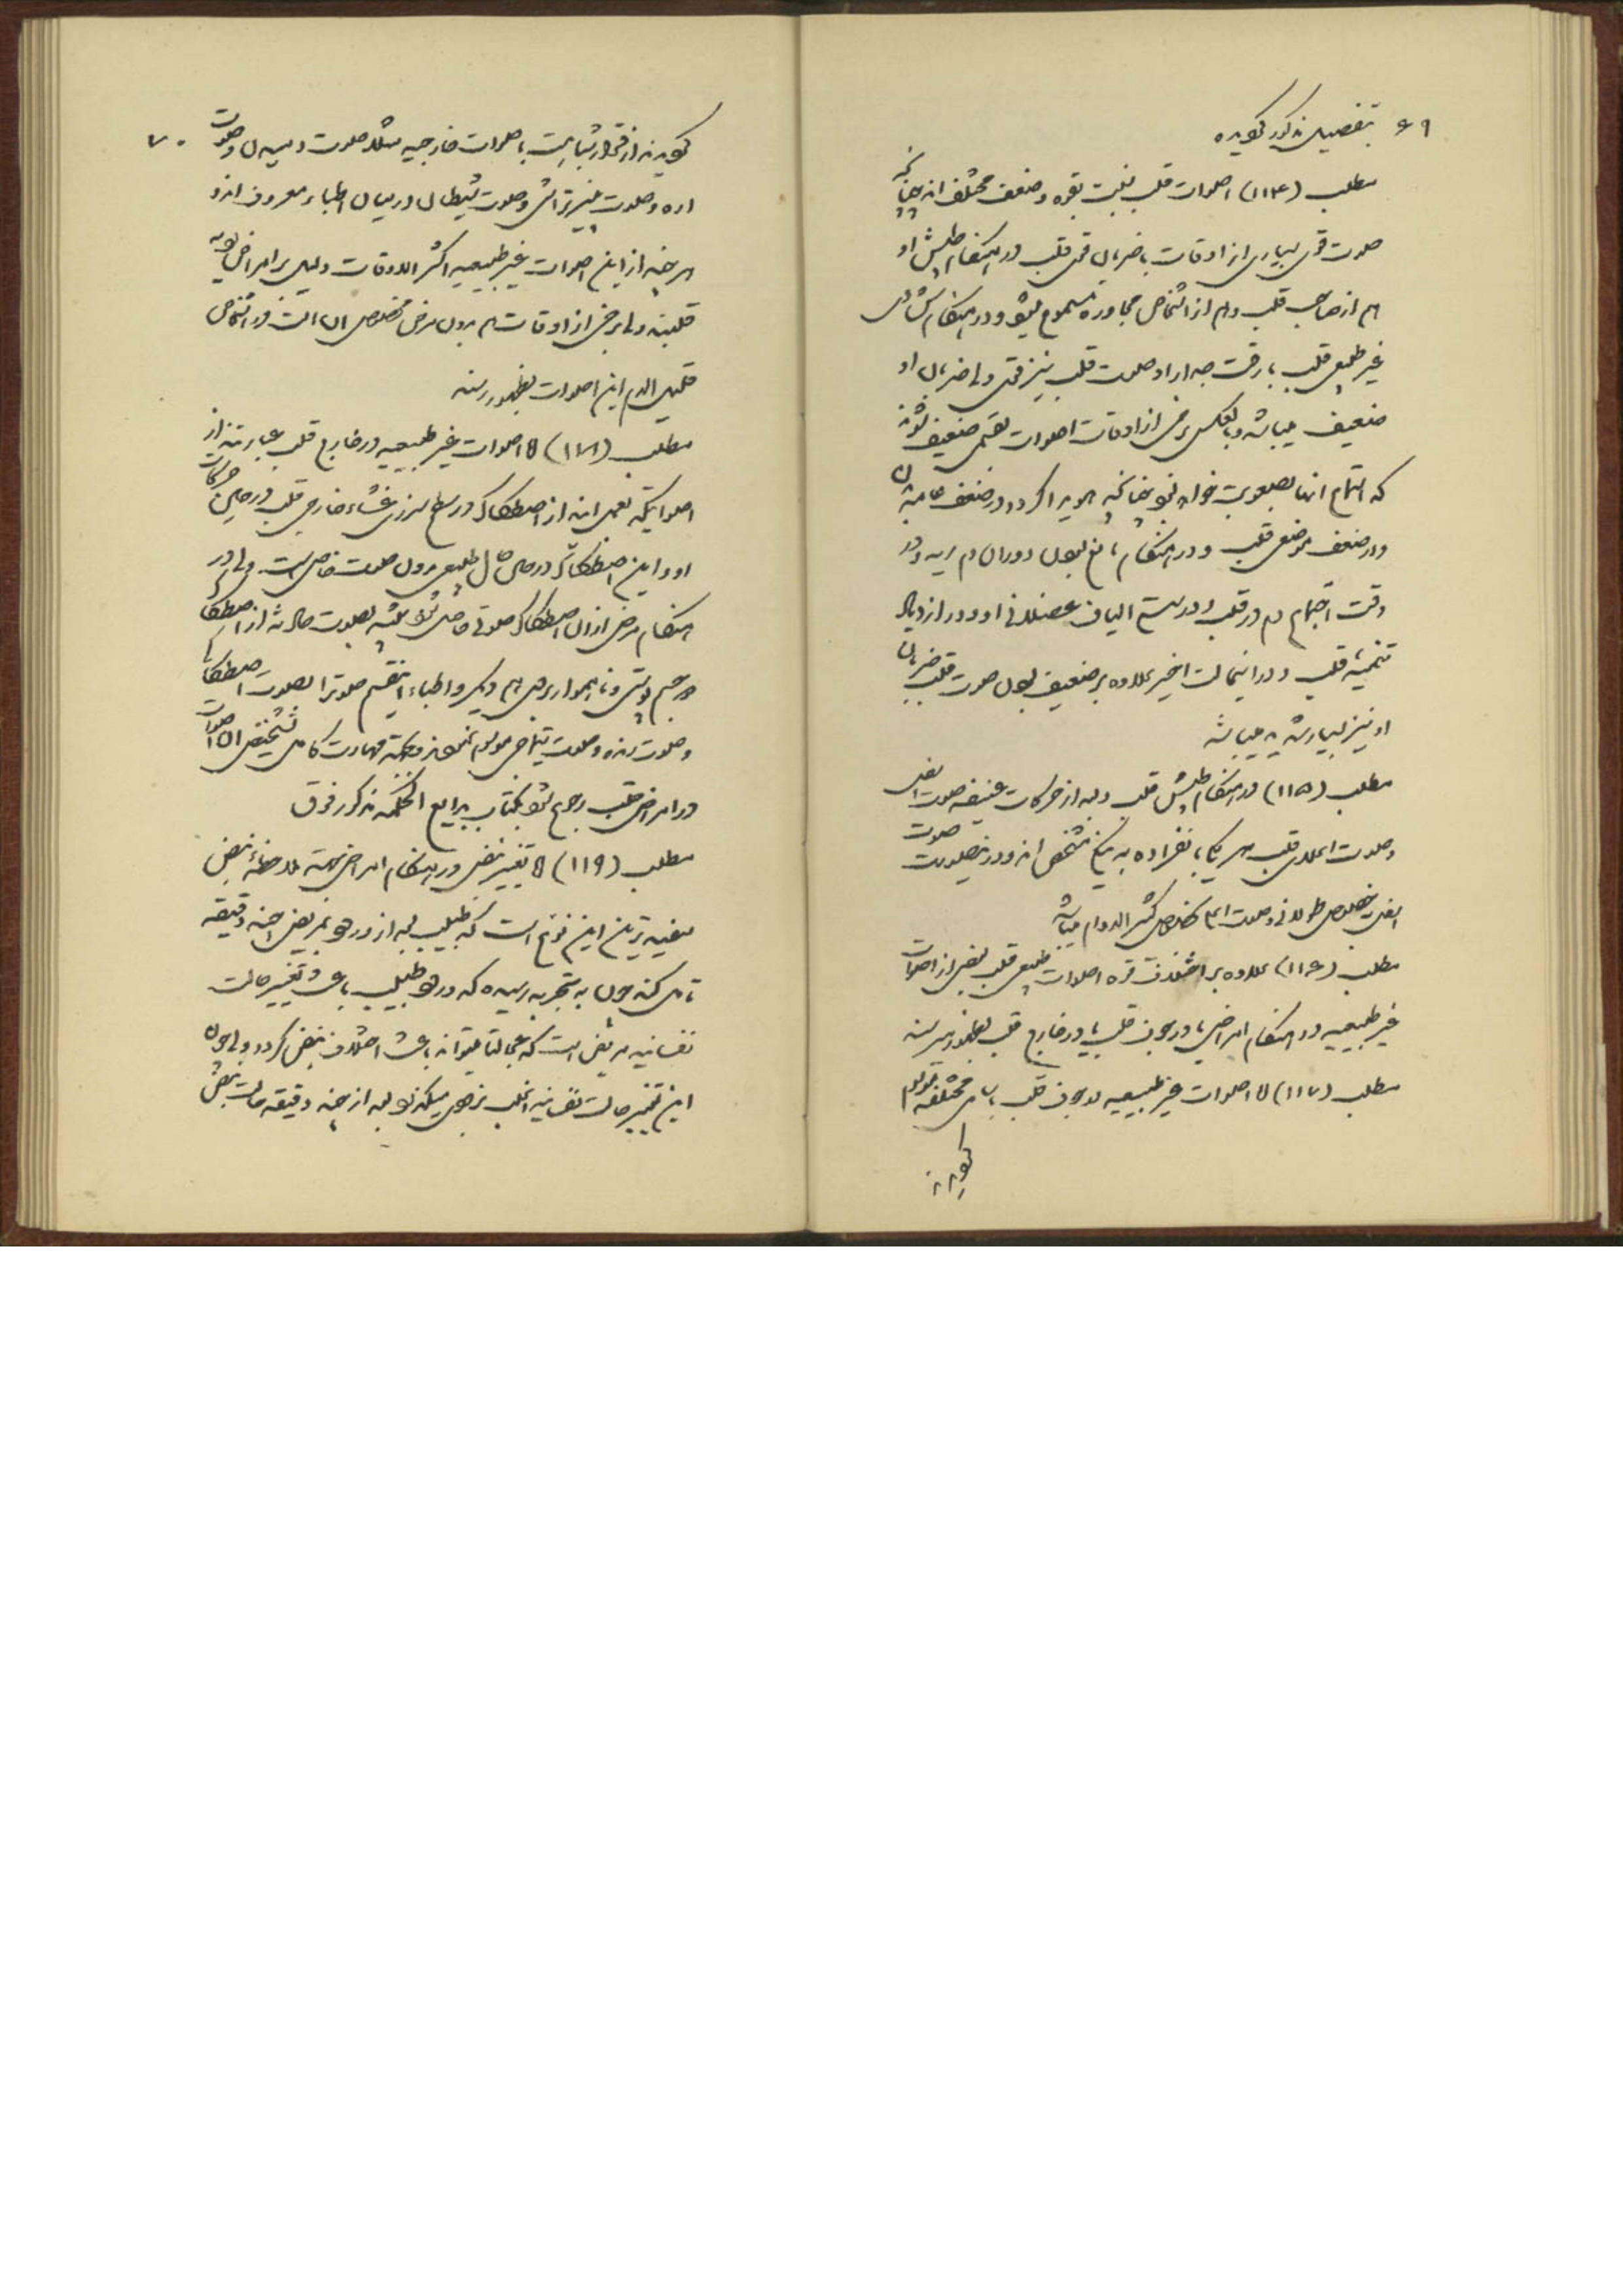 ۶۹ بتفصیل مذکور گویده
مطلب (۱۱۴) اصوات قلب نسبت بقوه و ضعف مختلف اند چنانکه
صوت قوی بسیاری از اوقات با ضربان قوی قلب در هنگام طپش او
هم از صاحب قلب و هم از اشخاص مجاوره مسموع میشود و در هنگام
غیر طبیعی قلب با رقت جدار او صوت قلب نیز قوی ولی ضربان او
ضعیف میباشد و بالعکس برخی از اوقات اصوات بقسمی ضعیف شوند
که استماع آنها بصعوبت خواهد بود چنانکه هویدا گردد در ضعف عامه بدن
و در ضعف موضعی قلب و در هنگام مانع بودن دوران دم ریه و در
وقت اجتماع دم در قلب و در الیاف عضلانی او و در ازدیاد
تنمیه قلب و در اینحالت اخیر علاوه بر ضعیف بودن صوت قلب ضربان
او نیز بسیار شدید میباشد
مطلب (۱۱۵) در هنگام طپش قلب و بعد از حرکات عنیفه صوت اسفل
و صوت اعلای قلب هر یک بانفراده به نیکی مشخص اند و در اینصورت صوت
اسفل بخصوص طولانی و صوت اعلی بخصوص الدوام میباشد
مطلب (۱۱۶) علاوه بر اختلاف قوه اصوات طبیعی قلب بعضی از اصوات
غیر طبیعیه در هنگام امراض یا در جوف قلب یا در خارج قلب بظهور میرسند
مطلب (۱۱۷) اما اصوات غیر طبیعیه در جوف قلب باسامی مختلفه موسوم
گویند
۷۰
گویند از قرار شباهت باصوات خارجیه مثلا صوت و صوت
اره و صوت و صوت در میان اطباء معروف اند و
هر چند از این اصوات غیر طبیعیه اکثر الاوقات دلیل بر امراض
قلبند ولی برخی از اوقات هم بدون مرض مخصوص آن آلت در اشخاص
قلیل الدم این اصوات بظهور رسند
مطلب (۱۱۸) اما اصوات غیر طبیعیه در خارج قلب عبارتند از
اصواتیکه بعمل آیند از اصطکاک در سطح لزج غشاء خارجی قلب در حین حرکات
او و این اصطکاک در حین حال طبیعی بدون صوت خاصی است ولی در
هنگام مرض از آن اصطکاک صوتی حاصل شود شبیه بصوت حادثه از اصطکاک
دو جسم درشت و ناهموار برهم دیگر و اطباء این قسم صوترا بصوت اصطکاک
و صوت رنده و صوت موسوم نموده اند و بجهة مهارت کامل تشخیص آن اصوات
در امراض قلب رجوع شود بکتاب بدایع الحکمه مذکور فوق
مطلب (۱۱۹) اما تغییر نبض در هنگام امراض بجهة ملاحظه نبض
مفید ترین این نوع است که طبیب بعد از ورود بمریض چند دقیقه
تامل کند چون به تجربه رسیده که ورود طبیب باعث تغییر حالت
نفسانیه مریض است که عجالتا میتواند باعث اختلاف نبض گردد ولی چون
این تغییر حالت نفسانیه اغلب بزودی میگذرد بعد از چند دقیقه حالت نبض